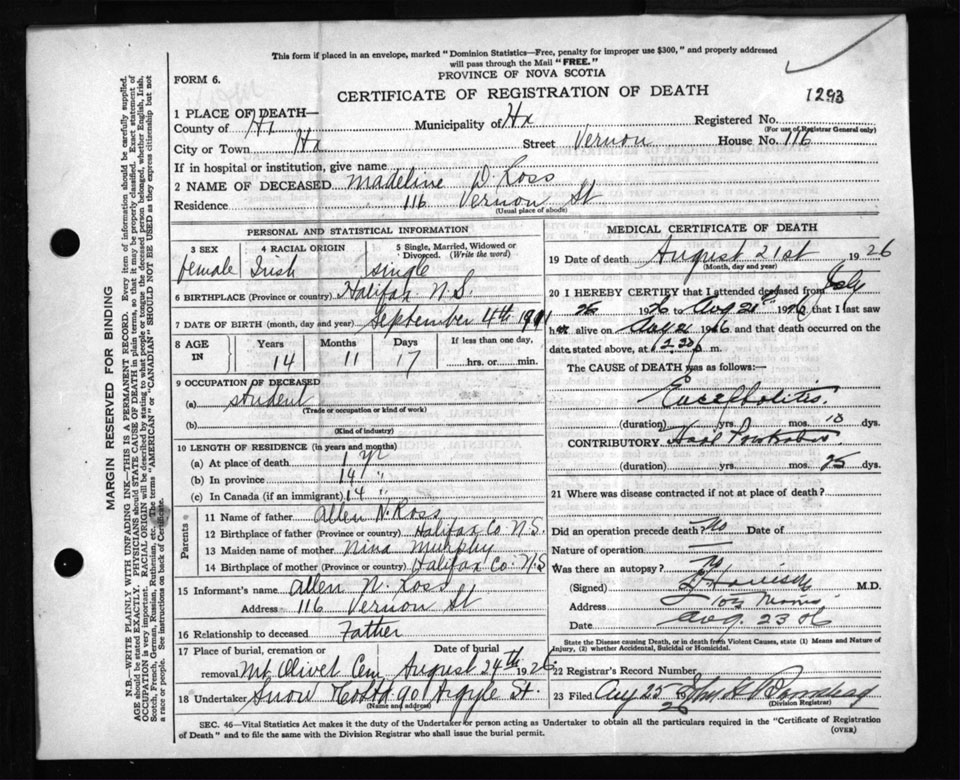 This form if placed in an envelope, marked "Dominion Statistics—Free, penalty for improper use $300," and properly addressed
will pass through the Mail "FREE."
FORM 6.
PROVINCE OF NOVA SCOTIA
CERTIFICATE OF REGISTRATION OF DEATH
1293
1 PLACE OF DEATH—
County of Hx Municipality of Hx Registered No.
(For use of Registrar General only)
City or Town Hx Street Vernon House No. 116
If in hospital or institution, give name
2 NAME OF DECEASED Madeline D. Ross
Residence 116 Vernon St
(Usual place of abode)
PERSONAL AND STATISTICAL INFORMATION
3 SEX 4 RACIAL ORIGIN 5 Single, Married, Widowed or Divorced. (Write the word)
female Irish single
6 BIRTHPLACE (Province or country) Halifax N.S.
7 DATE OF BIRTH (month, day and year) September 4th 1911
8 AGE IN Years Months Days If less than one day,
14 11 17 hrs. or min.
9 OCCUPATION OF DECEASED
(a) student
(Trade or occupation or kind of work)
(b)
(Kind of industry)
10 LENGTH OF RESIDENCE (in years and months)
(a) At place of death 1 yr
(b) In province 14 "
(c) In Canada (if an immigrant) 14 "
Parents
11 Name of father Allen N. Ross
12 Birthplace of father (Province or country) Halifax Co N.S.
13 Maiden name of mother Nina Murphy
14 Birthplace of mother (Province or country) Halifax Co: N.S
15 Informant's name Allen N. Ross
Address 116 Vernon St
16 Relationship to deceased Father
17 Place of burial, cremation or removal Date of burial
Mt Olivet Cem August 24th 1926
18 Undertaker Snow & Co Ltd 90 Argyle St.
(Name and address)
MEDICAL CERTIFICATE OF DEATH
19 Date of death August 21st 1926
(Month, day and year)
20 I HEREBY CERTIFY that I attended deceased from July
26 1926 to Aug 21 1926 that I last saw
h alive on Aug 21 1926 and that death occurred on the
date stated above, at m.
The CAUSE OF DEATH was as follows:
Encephalitis.
(duration) yrs. mos. 10 dys.
CONTRIBUTORY
(duration) yrs. mos. 25 dys.
21 Where was disease contracted if not at place of death?
Did an operation precede death? No Date of
Nature of operation —
Was there an autopsy? No
(Signed) M.D.
Address
Date Aug. 23 26
State the Disease causing Death, or in death from Violent Causes, state (1) Means and Nature of
Injury, (2) whether Accidental, Suicidal or Homicidal.
22 Registrar's Record Number
23 Filed Aug 25 1926
(Division Registrar)
SEC. 46—Vital Statistics Act makes it the duty of the Undertaker or person acting as Undertaker to obtain all the particulars required in the "Certificate of Registration
of Death" and to file the same with the Division Registrar who shall issue the burial permit.
(OVER)
MARGIN RESERVED FOR BINDING
N.B.—WRITE PLAINLY WITH UNFADING INK—THIS IS A PERMANENT RECORD. Every item of information should be carefully supplied.
AGE should be stated EXACTLY. PHYSICIANS should STATE CAUSE OF DEATH in plain terms, so that it may be properly classified. Exact statement of
OCCUPATION is very important. RACIAL ORIGIN will be described by stating to what people or tongue the deceased person belonged, whether English, Irish,
Scotch, French, German, Russian, Ruthenian, etc. The terms "AMERICAN" or "CANADIAN" SHOULD NOT BE USED as they express citizenship but not
a race or people. See instructions on back of Certificate.